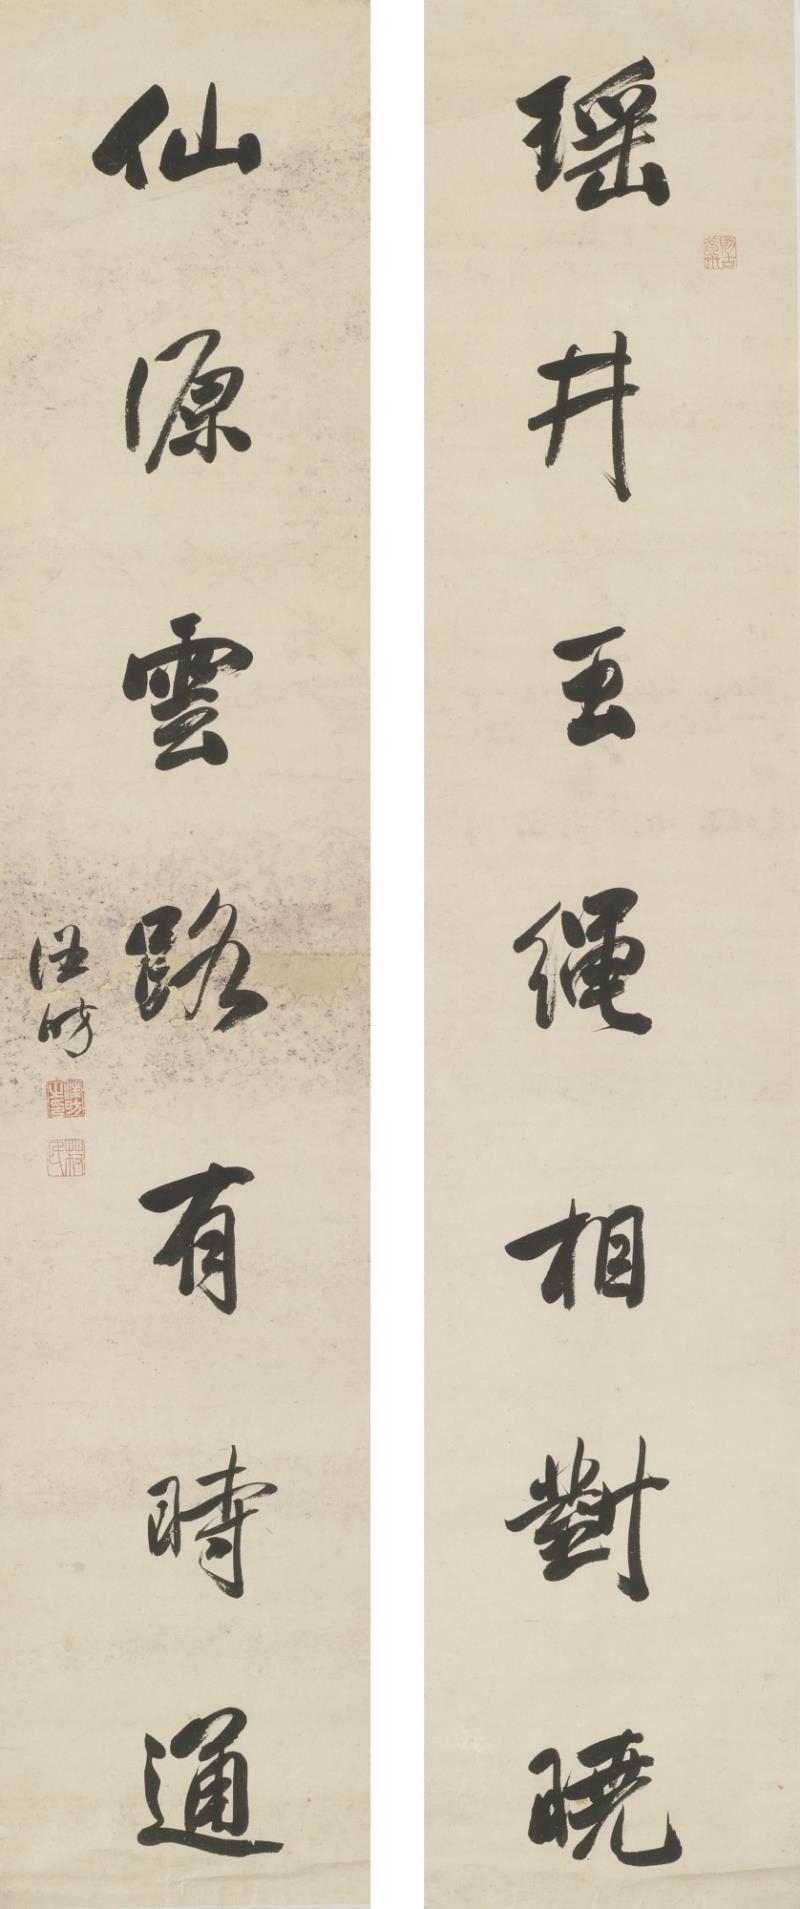 瑶井玉繩相對曉
仙源雲路有時通